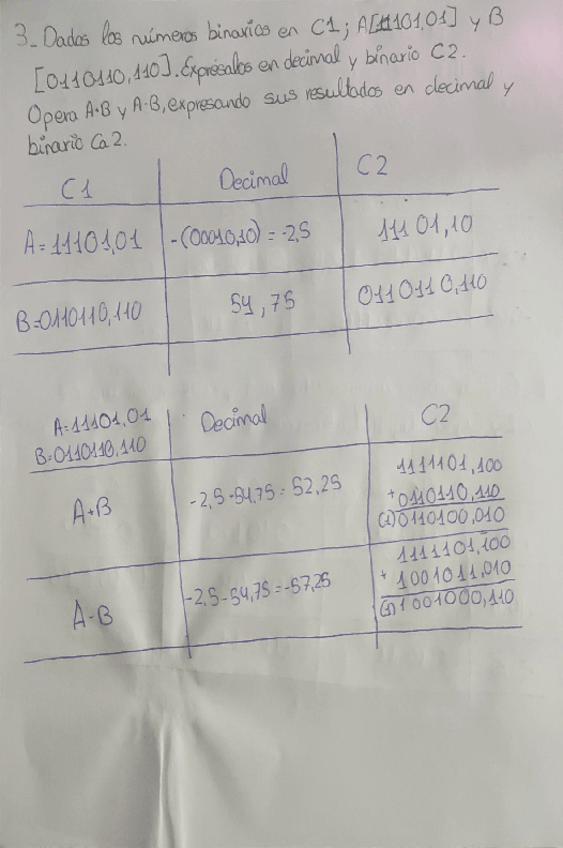 3_ Dados los números binarios en C1; A[11101,01] y B
[0110110,110]. Exprésalos en decimal y binario C2.
Opera A+B y A-B, expresando sus resultados en decimal y
binario Ca2.
C1 Decimal C2
A=11101,01 -(00010,10) = -2,5 11101,10
B=0110110,110 54,75 0110110,110
A=11101,01 Decimal C2
B=0110110,110
1111101,100
A+B -2,5+54,75= 52,25 +0110110,110
(1)0110100,010
1111101,100
A-B -2,5-54,75=-57,25 +1001011,010
(1)1001000,110